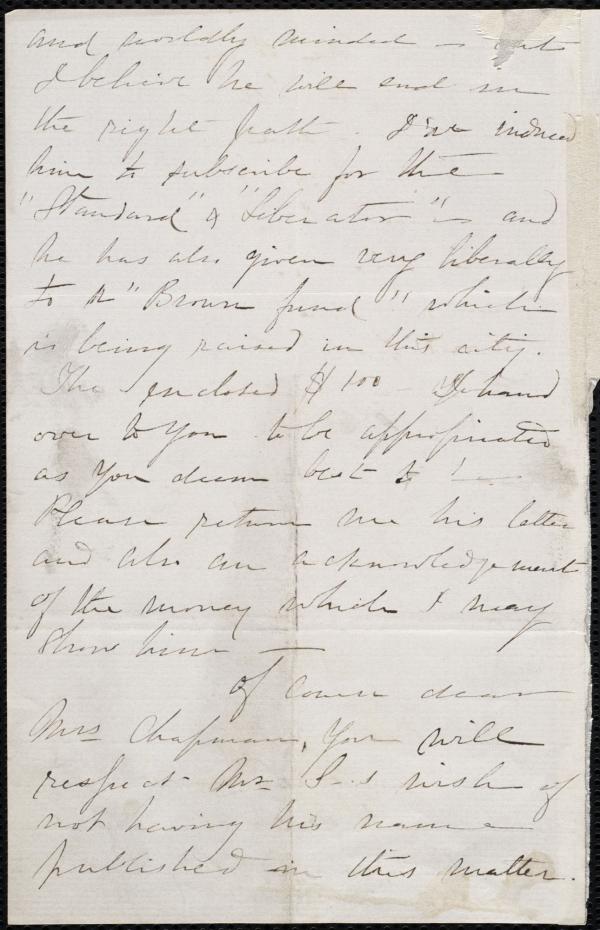 and worldly minded – but
I believe he will end in
the right path. I've induced
him to subscribe for the
"Standard" & "Liberator" – and
he has also given very liberally
to a "Brown fund" which
is being raised in this city.
The enclosed $100 – I hand
over to you to be appropriated
as you deem best
Please return me his letter
and also an acknowledgement
of the money which I may
show him –
Of course dear
Mrs Chapman, you will
respect Mr S–s wish of
not having his name
published in this matter.